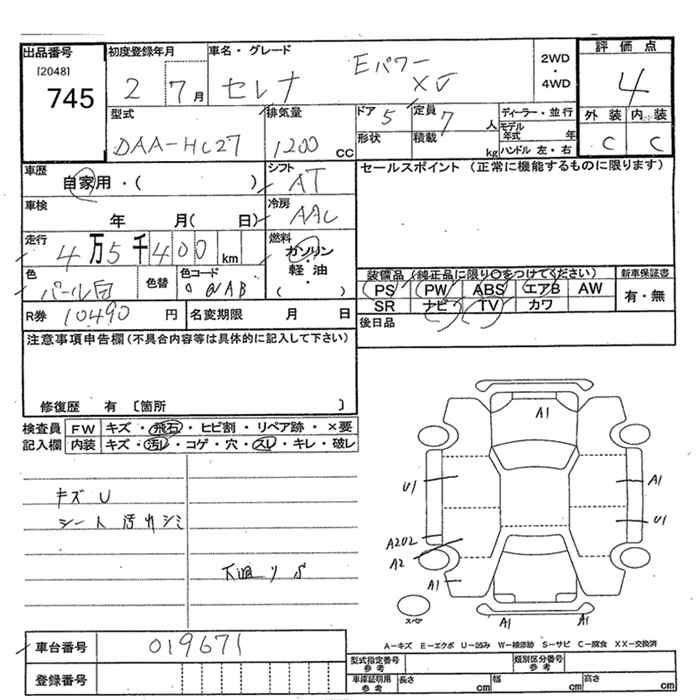 出品番号
[2048]
745
初度登録年月
2 7月
車名・グレード
セレナ Eパワー XV
2WD
・
4WD
評価点
4
外装 内装
C C
型式
DAA-HC27
排気量
1200 CC
ドア 5
定員 7 人
形状
積載 kg
ディーラー・並行
モデル年式 年
ハンドル 左・右
車歴
自家用・( )
シフト
AT
セールスポイント (正常に機能するものに限ります)
車検
年 月( 日)
冷房
AAC
走行
4万5千400km
燃料
ガソリン
・
軽油
( )
色
パール白
色替
色コード
QAB
装備品(純正品に限り○をつけてください)
新車保証書
PS PW ABS エアB AW
有・無
SR ナビ TV カワ
R券 10490円
名変期限 月 日
後日品
注意事項申告欄(不具合内容等は具体的に記入して下さい)
修復歴 有 〔箇所 〕
検査員 FW キズ・飛石・ヒビ割・リペア跡・×要
記入欄 内装 キズ・汚レ・コゲ・穴・スレ・キレ・破レ
キズU
シート汚れシミ
下廻りS
A1
U1
A1
U1
A202
A2
A1
A1
A1
スペア
車台番号 019671
登録番号
A-キズ E-エクボ U-凹み W-補修跡 S-サビ C-腐食 XX-交換済
型式指定番号参考
類別区分番号参考
車庫証明用参考
長さ cm
幅 cm
高さ cm